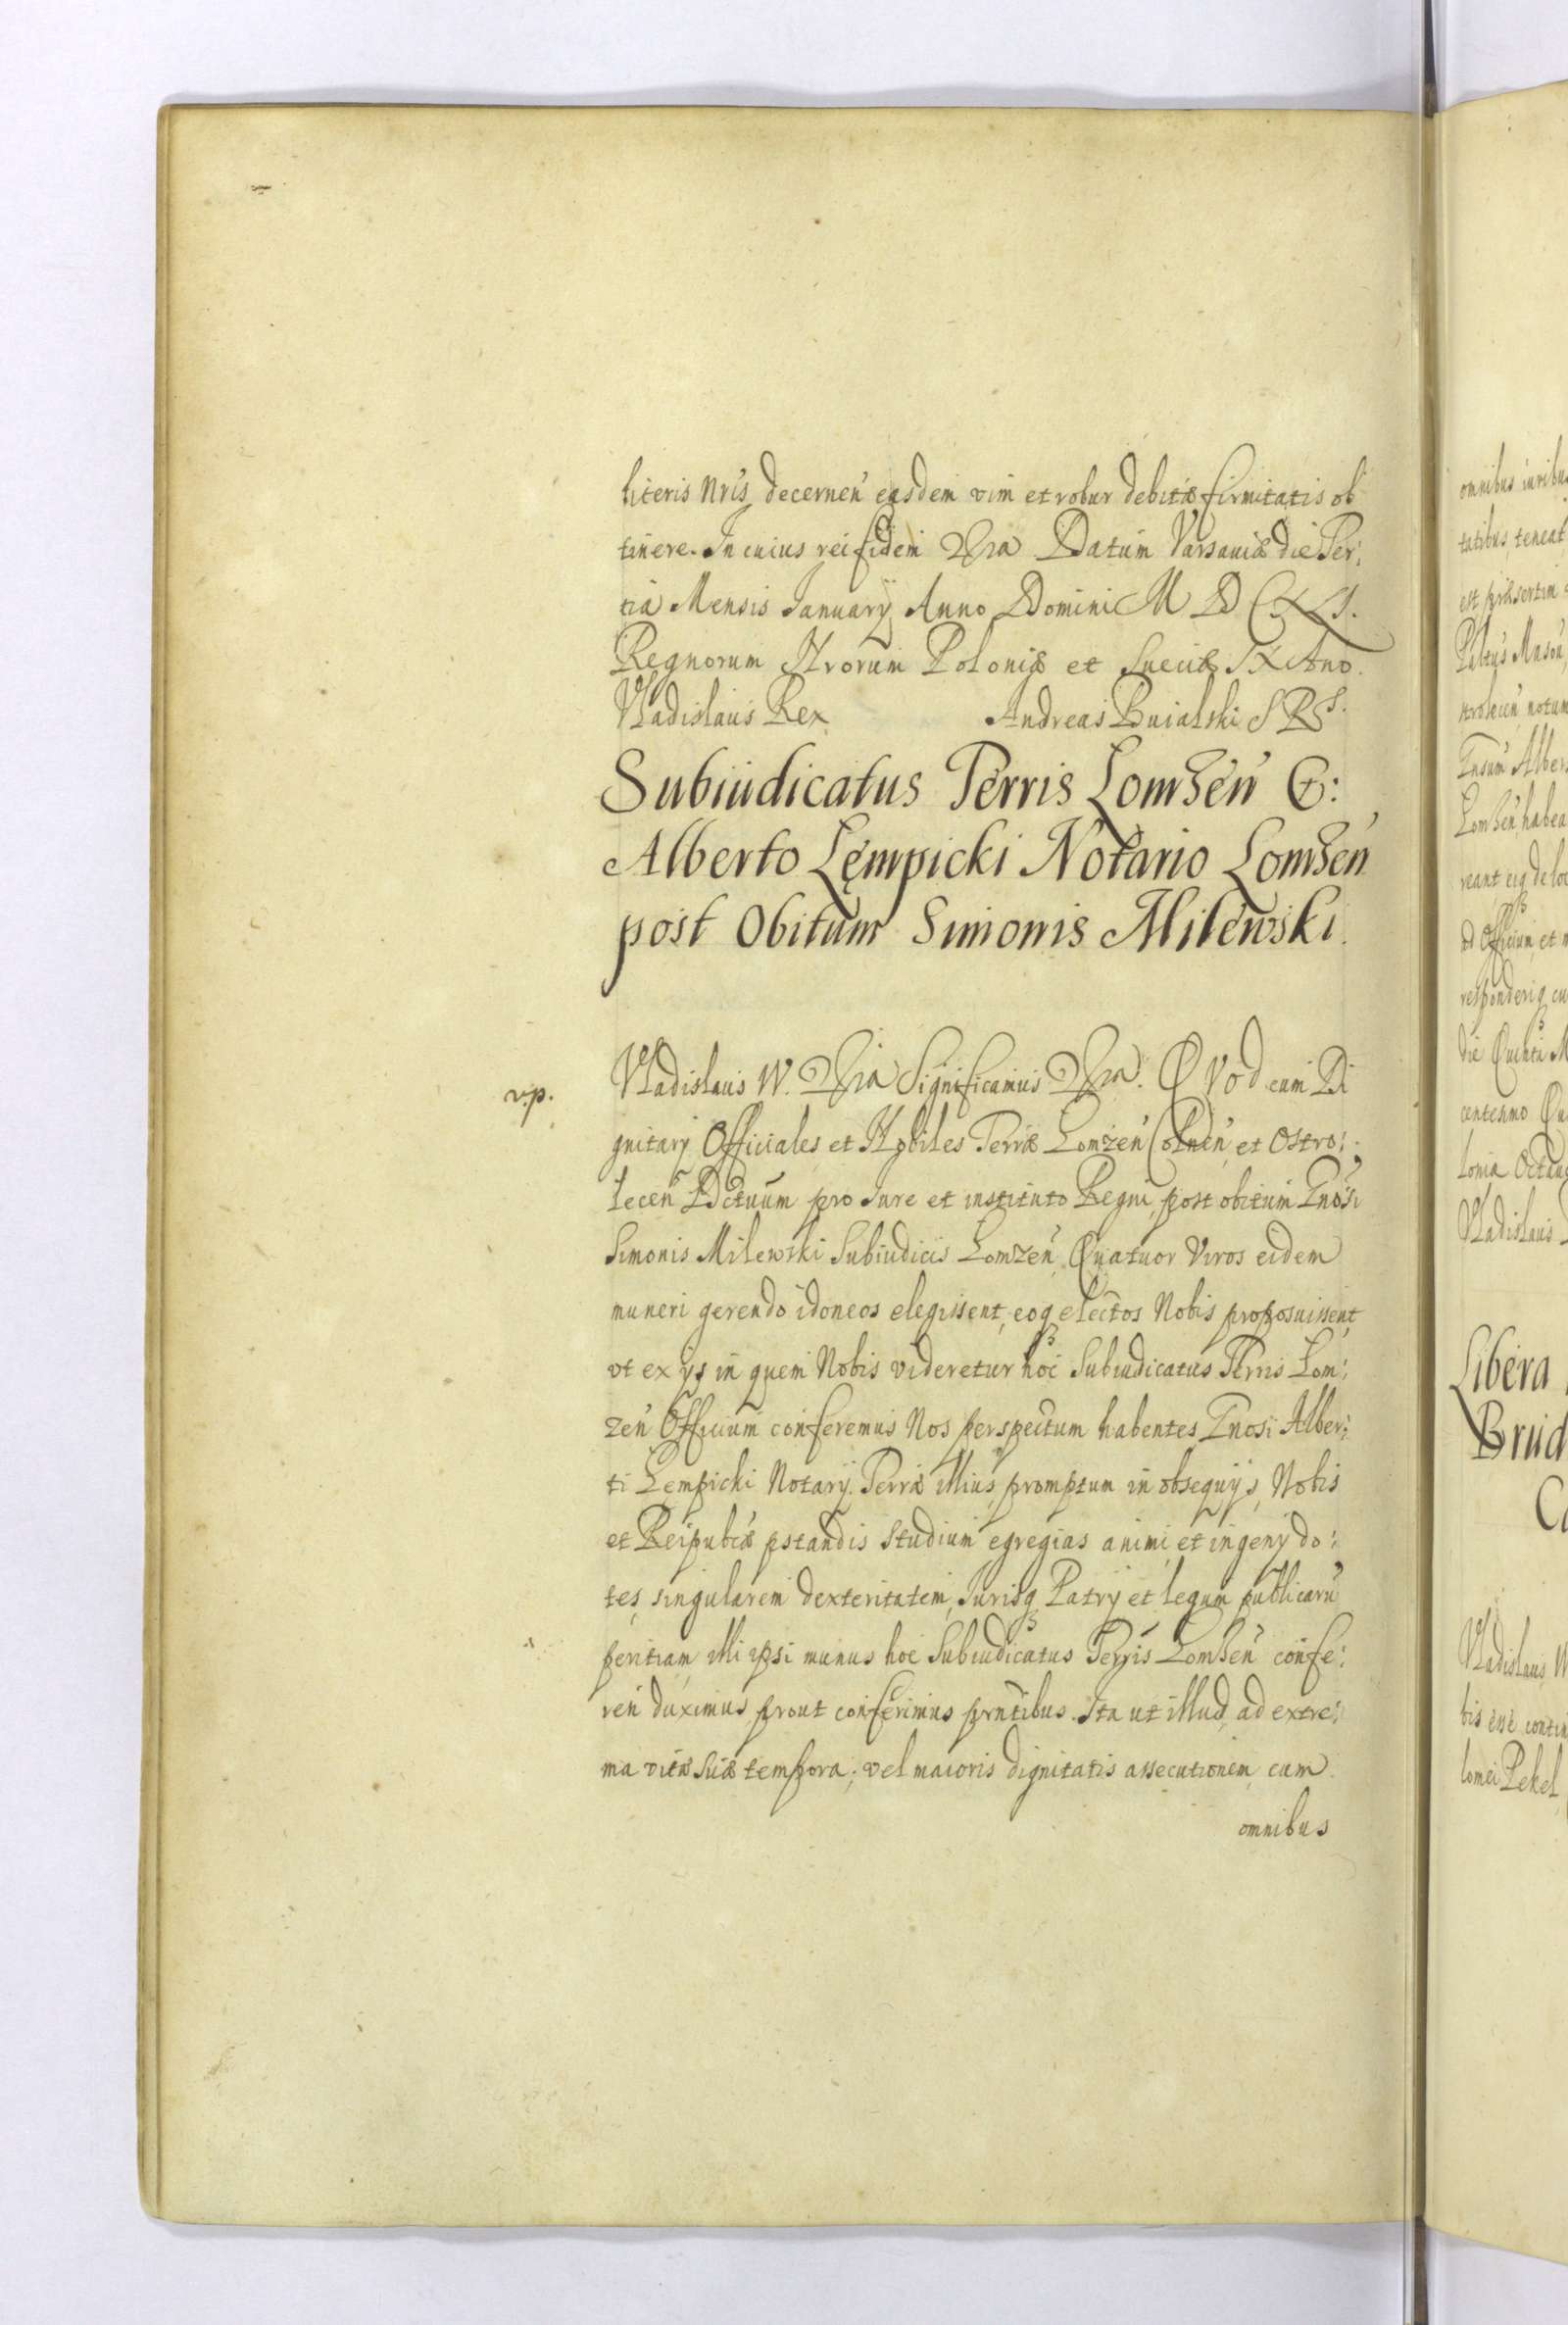 literis nris decernen easdem vim et robur debitæ firmitatis ob
tinere. In cuius rei fidem Datum Varsaviæ die Ter:
tia Mensis January Anno Domini M D C XLI.
Regnorum Nrorum Poloniæ et Sueciæ IX Ano.
Vladislaus Rex Andreas Buialski S R S.
Subiudicatus Terris Lomzen G:
Alberto Lęmpicki Notario Lomzen
post Obitum Simonis Milewski.
v.p.
Vladislaus IV. Significamus Quod cum Di
gnitary Officiales et Nobiles Terræ Lomzen Colnen et Ostro:
lecen Dctuum pro Iure et instituto Regni, post obitum Gnosi
Simonis Milewski Subiudicis Lomzen, Quatuor Viros eidem
muneri gerendo idoneos elegissent, eosq electos Nobis proposuissent
vt ex ys in quem Nobis videretur hoc Subiudicatus Terris Lom:
zen Officium conferemus Nos perspectum habentes Gnosi Alber:
ti Lempicki Notary Terræ illius promptum in obsequys Nobis
et Reipubcæ pstandis studium egregias animi et ingeny do:
tes, singularem dexteritatem, Iurisq Patry et legum publicaru
peritiam illi ipsi munus hoc Subiudicatus Terris Lomzen confe:
ren duximus prout conferimus prntibus. Ita ut illud ad extre:
ma vitæ suæ tempora; vel maioris dignitatis assecutionem cum
omnibus
omnibus iuribu
tatibus teneat
est præsertim
strolecen notum
Lomzen habea
ad Officium et
die Quinta M
centesmo Qu
lonia Octauo
Vladislaus
Libera
Brud
Vladislaus W
bis esse contin
lomei Pekel